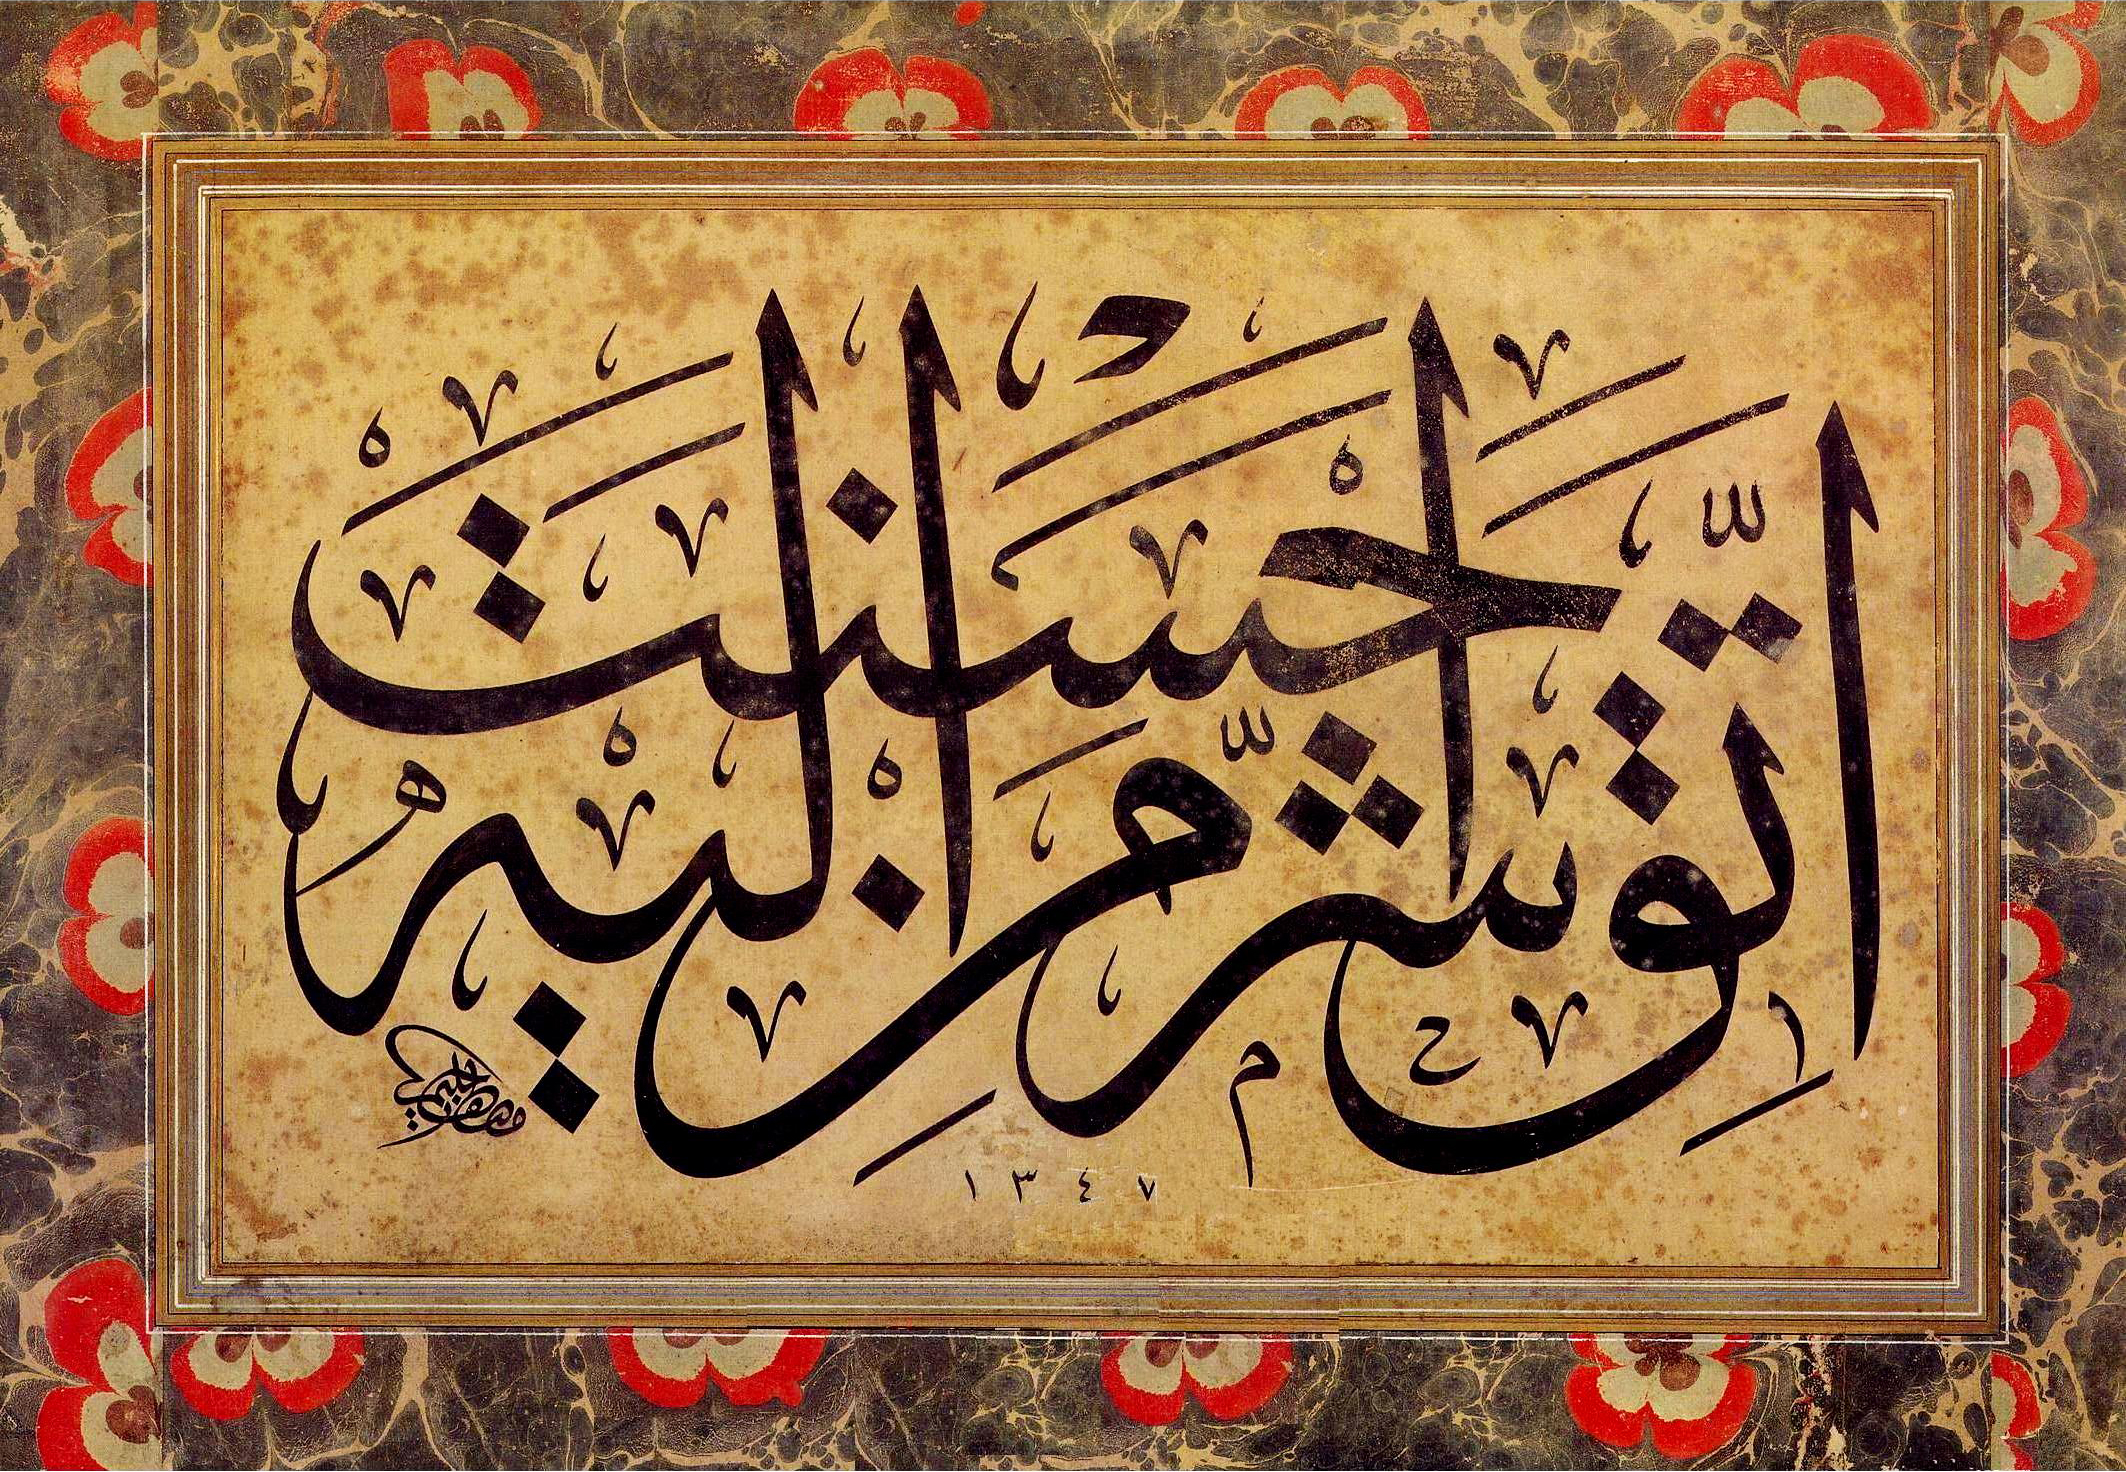 اِتَّقِ شَرَّ مَنْ اَحْسَنْتَ اِلَيْهِ
١٣٤٧